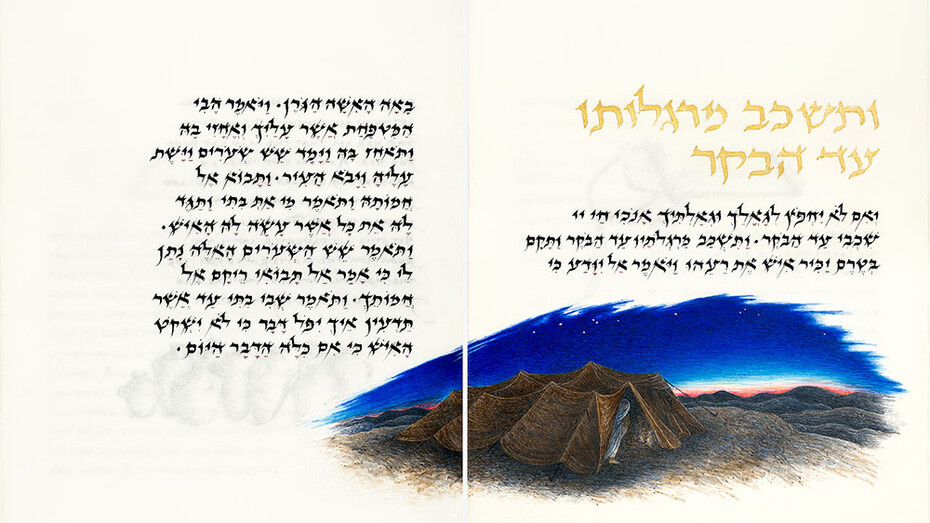 ותשכב מרגלותו
עד הבקר
וְאִם לֹא יַחְפֹּץ לְגָאֳלֵךְ וּגְאַלְתִּיךְ אָנֹכִי חַי יי
שִׁכְבִי עַד הַבֹּקֶר · וַתִּשְׁכַּב מַרְגְּלוֹתָיו עַד הַבֹּקֶר וַתָּקָם
בְּטֶרֶם יַכִּיר אִישׁ אֶת רֵעֵהוּ וַיֹּאמֶר אַל יִוָּדַע כִּי
בָאָה הָאִשָּׁה הַגֹּרֶן · וַיֹּאמֶר הָבִי
הַמִּטְפַּחַת אֲשֶׁר עָלַיִךְ וְאֶחֳזִי בָהּ
וַתֹּאחֶז בָּהּ וַיָּמָד שֵׁשׁ שְׂעֹרִים וַיָּשֶׁת
עָלֶיהָ וַיָּבֹא הָעִיר · וַתָּבוֹא אֶל
חֲמוֹתָהּ וַתֹּאמֶר מִי אַתְּ בִּתִּי וַתַּגֶּד
לָהּ אֵת כָּל אֲשֶׁר עָשָׂה לָהּ הָאִישׁ ·
וַתֹּאמֶר שֵׁשׁ הַשְּׂעֹרִים הָאֵלֶּה נָתַן
לִי כִּי אָמַר אַל תָּבוֹאִי רֵיקָם אֶל
חֲמוֹתֵךְ · וַתֹּאמֶר שְׁבִי בִתִּי עַד אֲשֶׁר
תֵּדְעִין אֵיךְ יִפֹּל דָּבָר כִּי לֹא יִשְׁקֹט
הָאִישׁ כִּי אִם כִּלָּה הַדָּבָר הַיּוֹם ·